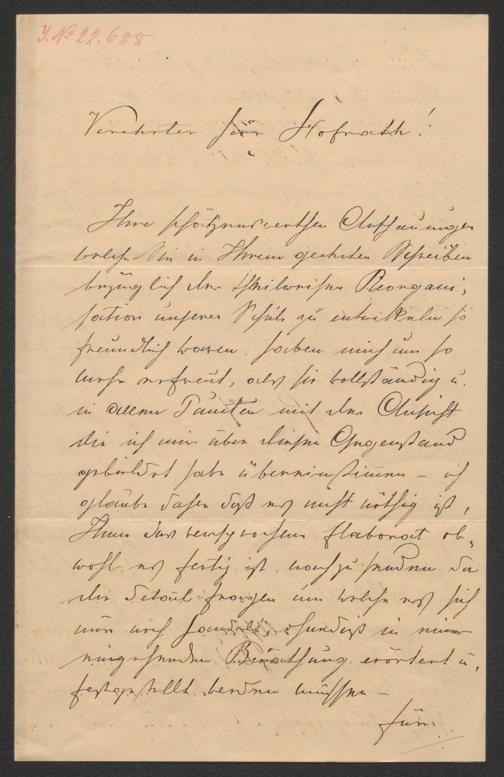 J. No 22.688
Verehrter Herr Hofrath!
Ihre schätzenswerthen Anschauungen
welche Sie in Ihrem geehrten Schreiben
bezüglich der theilweisen Reorgani-
sation unserer Schule zu entwikeln so
freundlich waren, haben mich um so
mehr erfreut, als sie vollständig u.
in allen Puncten mit der Ansicht
die ich mir über diesen Gegenstand
gebildet habe übereinstimmen – ich
glaube daher daß es nicht nöthig ist,
Ihnen das versprochene Elaborat ob-
wohl es fertig ist, nachzusenden da
die Detail fragen um welche es sich
nur noch handelt, ohnedieß in einer
eingehenden Berathung erörtert u.
festgestellt werden müssen –
Für